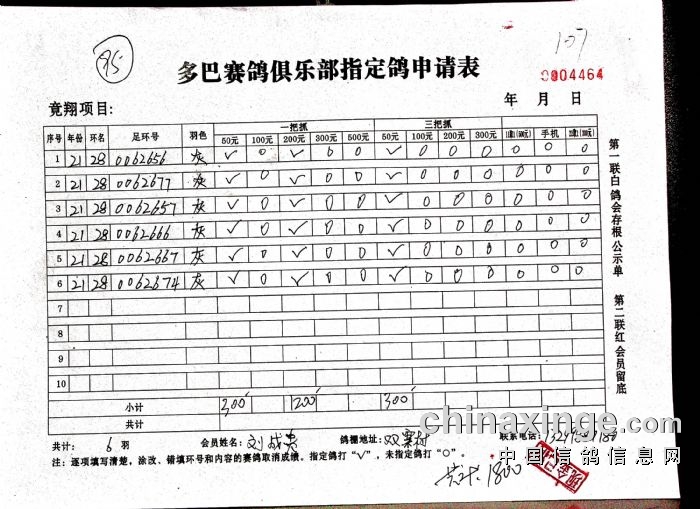 95
107
多巴赛鸽俱乐部指定鸽申请表
0004464
竟翔项目:
年 月 日
序号 年份 环名 足环号 羽色 一把抓 三把抓
50元 100元 200元 300元 500元 50元 100元 200元 300元 手机
1 21 28 0062656 灰 √ 0 √ 0 0 √ 0 0 0 0 0 0
2 21 28 0062677 灰 √ 0 √ 0 0 √ 0 0 0 0 0 0
3 21 28 0062657 灰 √ 0 √ 0 0 √ 0 0 0 0 0 0
4 21 28 0062666 灰 √ 0 √ 0 0 √ 0 0 0 0 0 0
5 21 28 0062667 灰 √ 0 √ 0 0 √ 0 0 0 0 0 0
6 21 28 0062674 灰 √ 0 √ 0 0 √ 0 0 0 0 0 0
7
8
9
10
小计 300 1200 300
共计
第一联白鸽会存根公示单 第二联红会员留底
共计: 6 羽 会员姓名: 刘成 鸽棚地址: 双寨村 联系电话:
注: 逐项填写清楚,涂改、错填环号和内容的赛鸽取消成绩。指定鸽打“√”,未指定鸽打“O”。
共计: 1800
chinaxinge.com
中国信鸽信息网